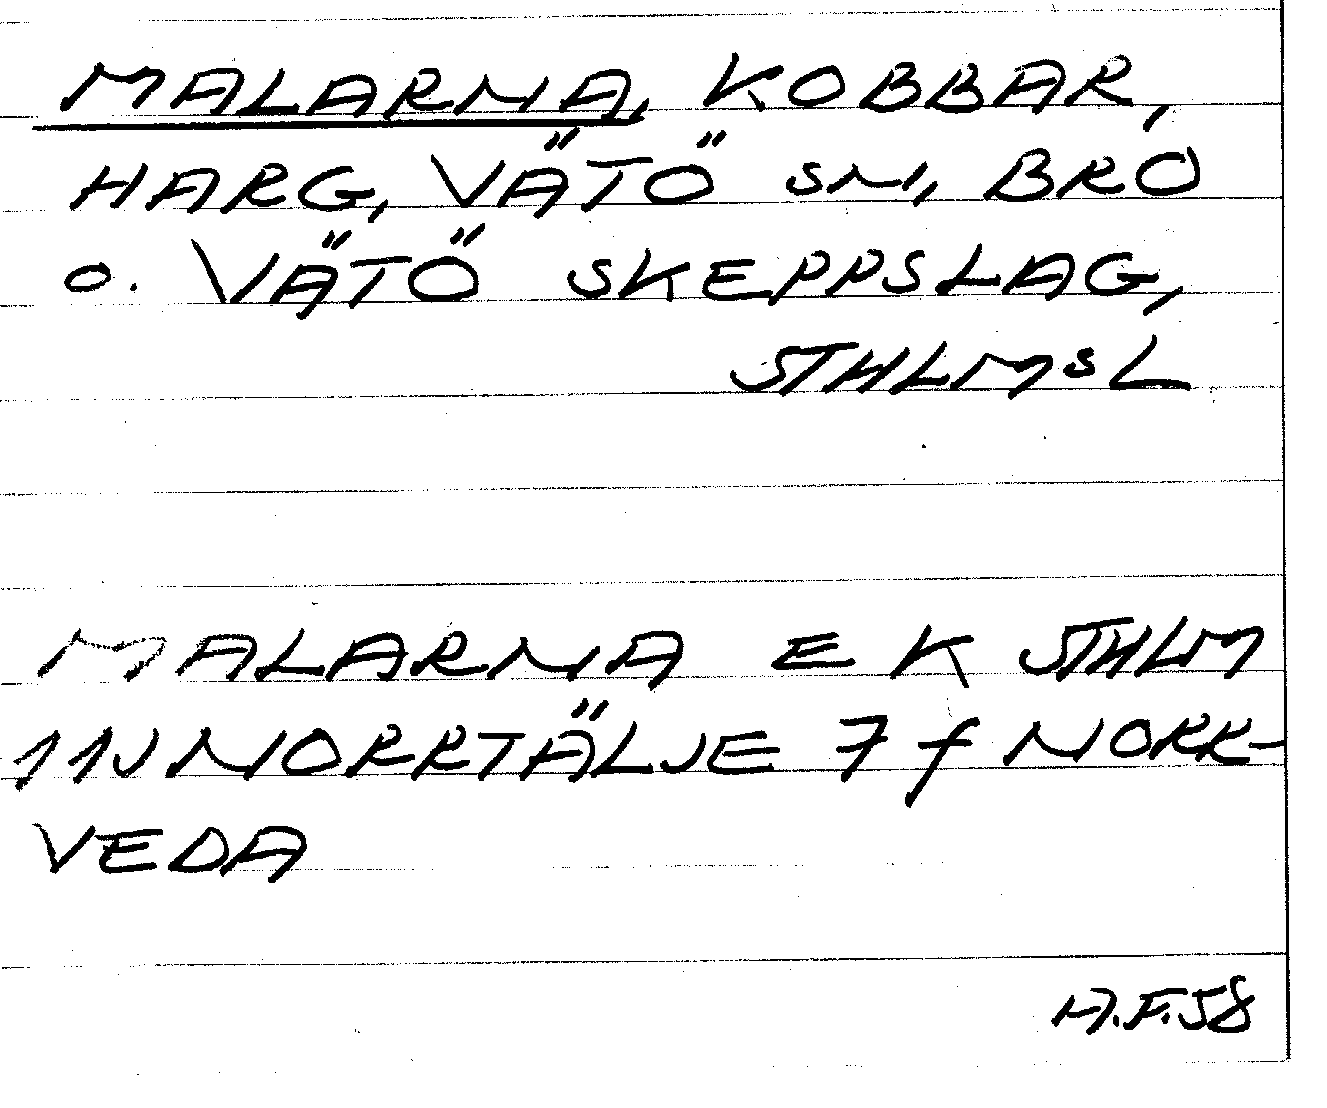 MALARNA, KOBBAR,
HARG, VÄTÖ SN, BRO
O. VÄTÖ SKEPPSLAG,
STHLMSL
MALARNA EK STHLM
11J NORRTÄLJE 7 f NORR-
VEDA
H.F.58